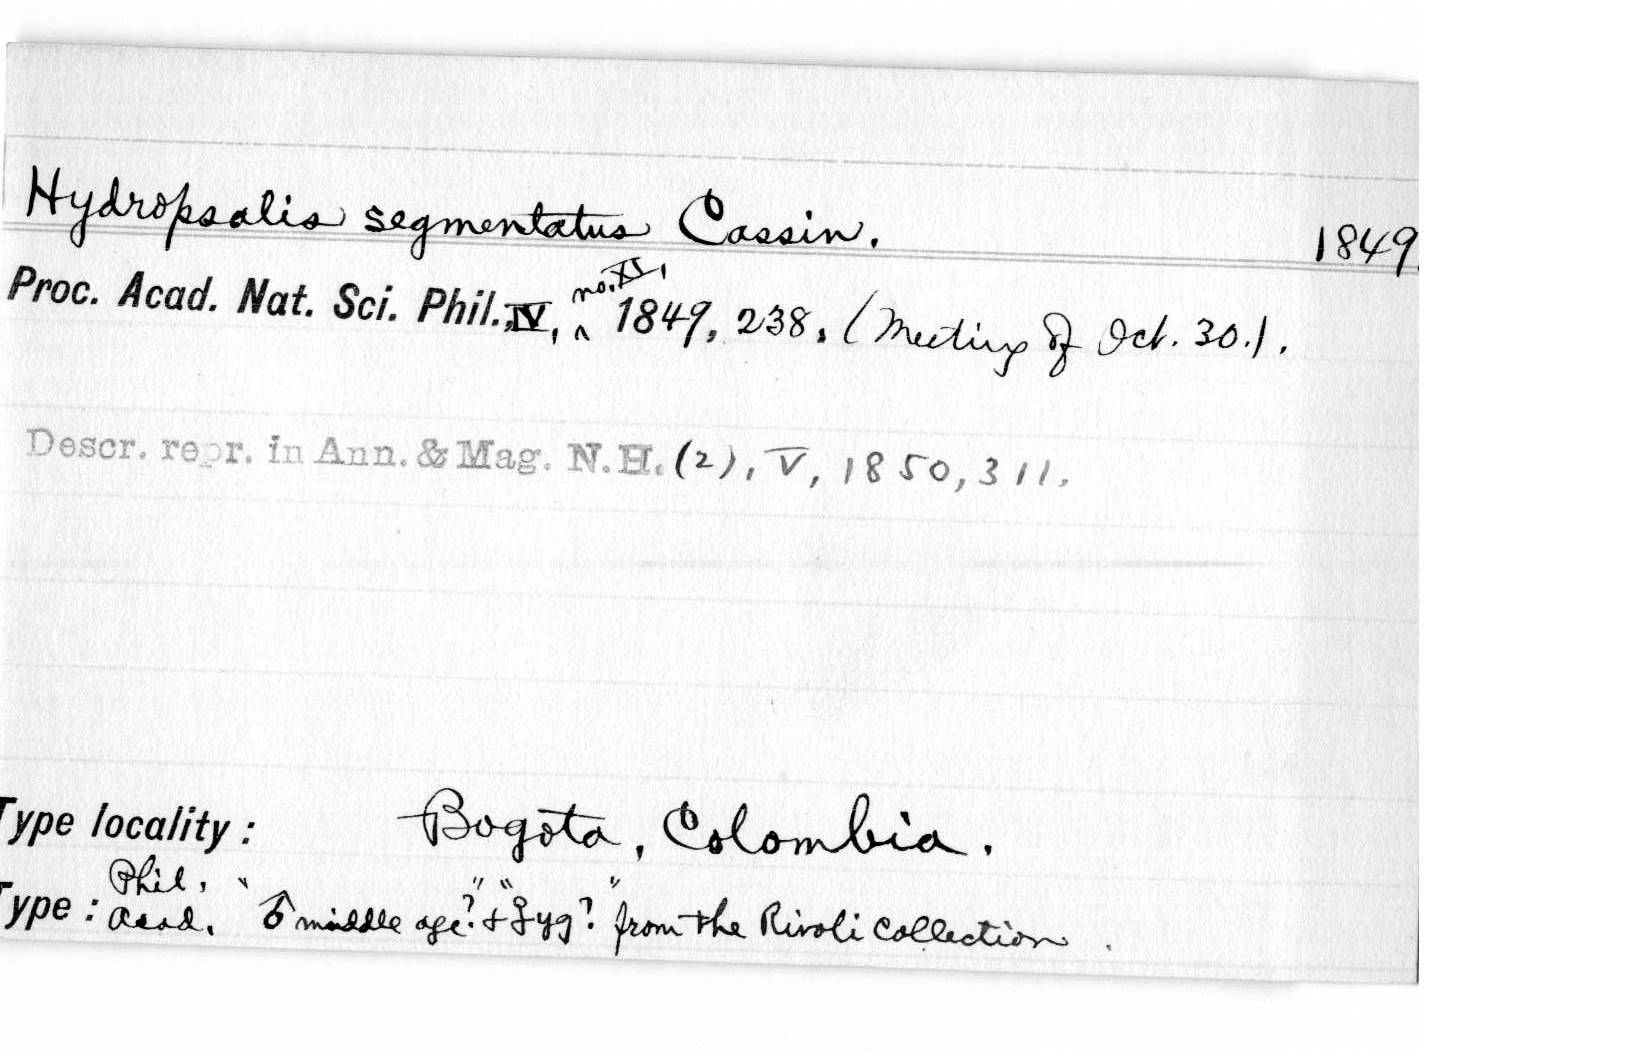 Hydropsalis segmentatus Cassin. 1849.
Proc. Acad. Nat. Sci. Phil., IV, no. XI, 1849, 238. (Meeting of Oct. 30.).
Descr. repr. in Ann. & Mag. N.H. (2), V, 1850, 311.
Type locality: Bogota, Colombia.
Type: Phil. Acad. "♂ middle age?" + "♀ yg?" from the Rivoli collection.